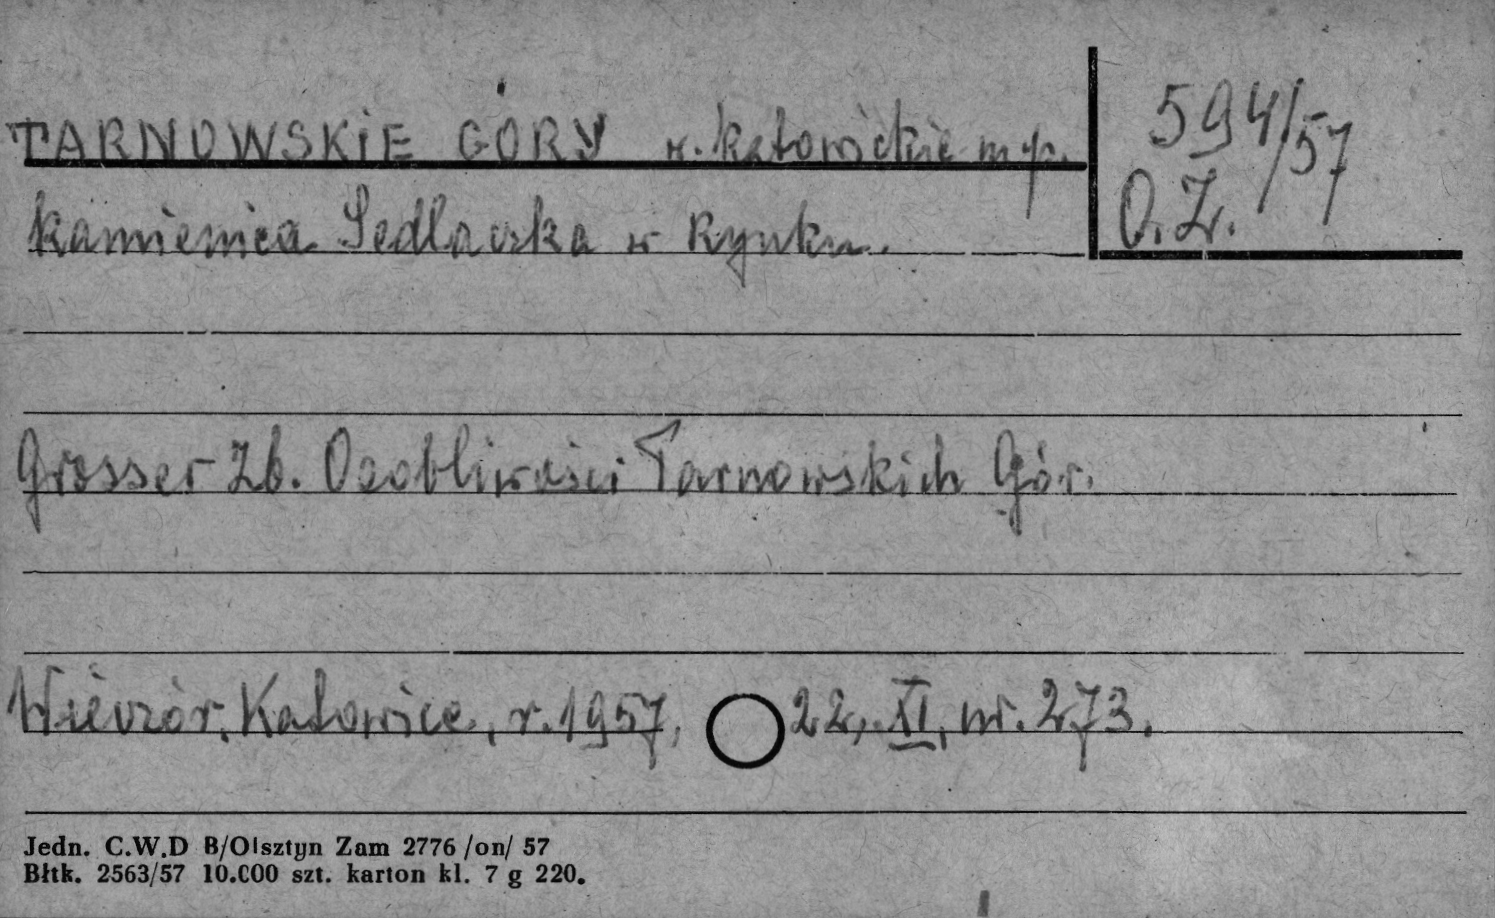 TARNOWSKIE GÓRY w. katowickie m.p.
594/57
O.Z.
kamienica Sedlaczka w Rynku.
Grosser Zb. Osobliwości Tarnowskich Gór.
Wieczór. Katowice, r. 1957, 22. XI, nr. 273.
Jedn. C.W.D B/Olsztyn Zam 2776 /on/ 57
Bltk. 2563/57 10.000 szt. karton kl. 7 g 220.